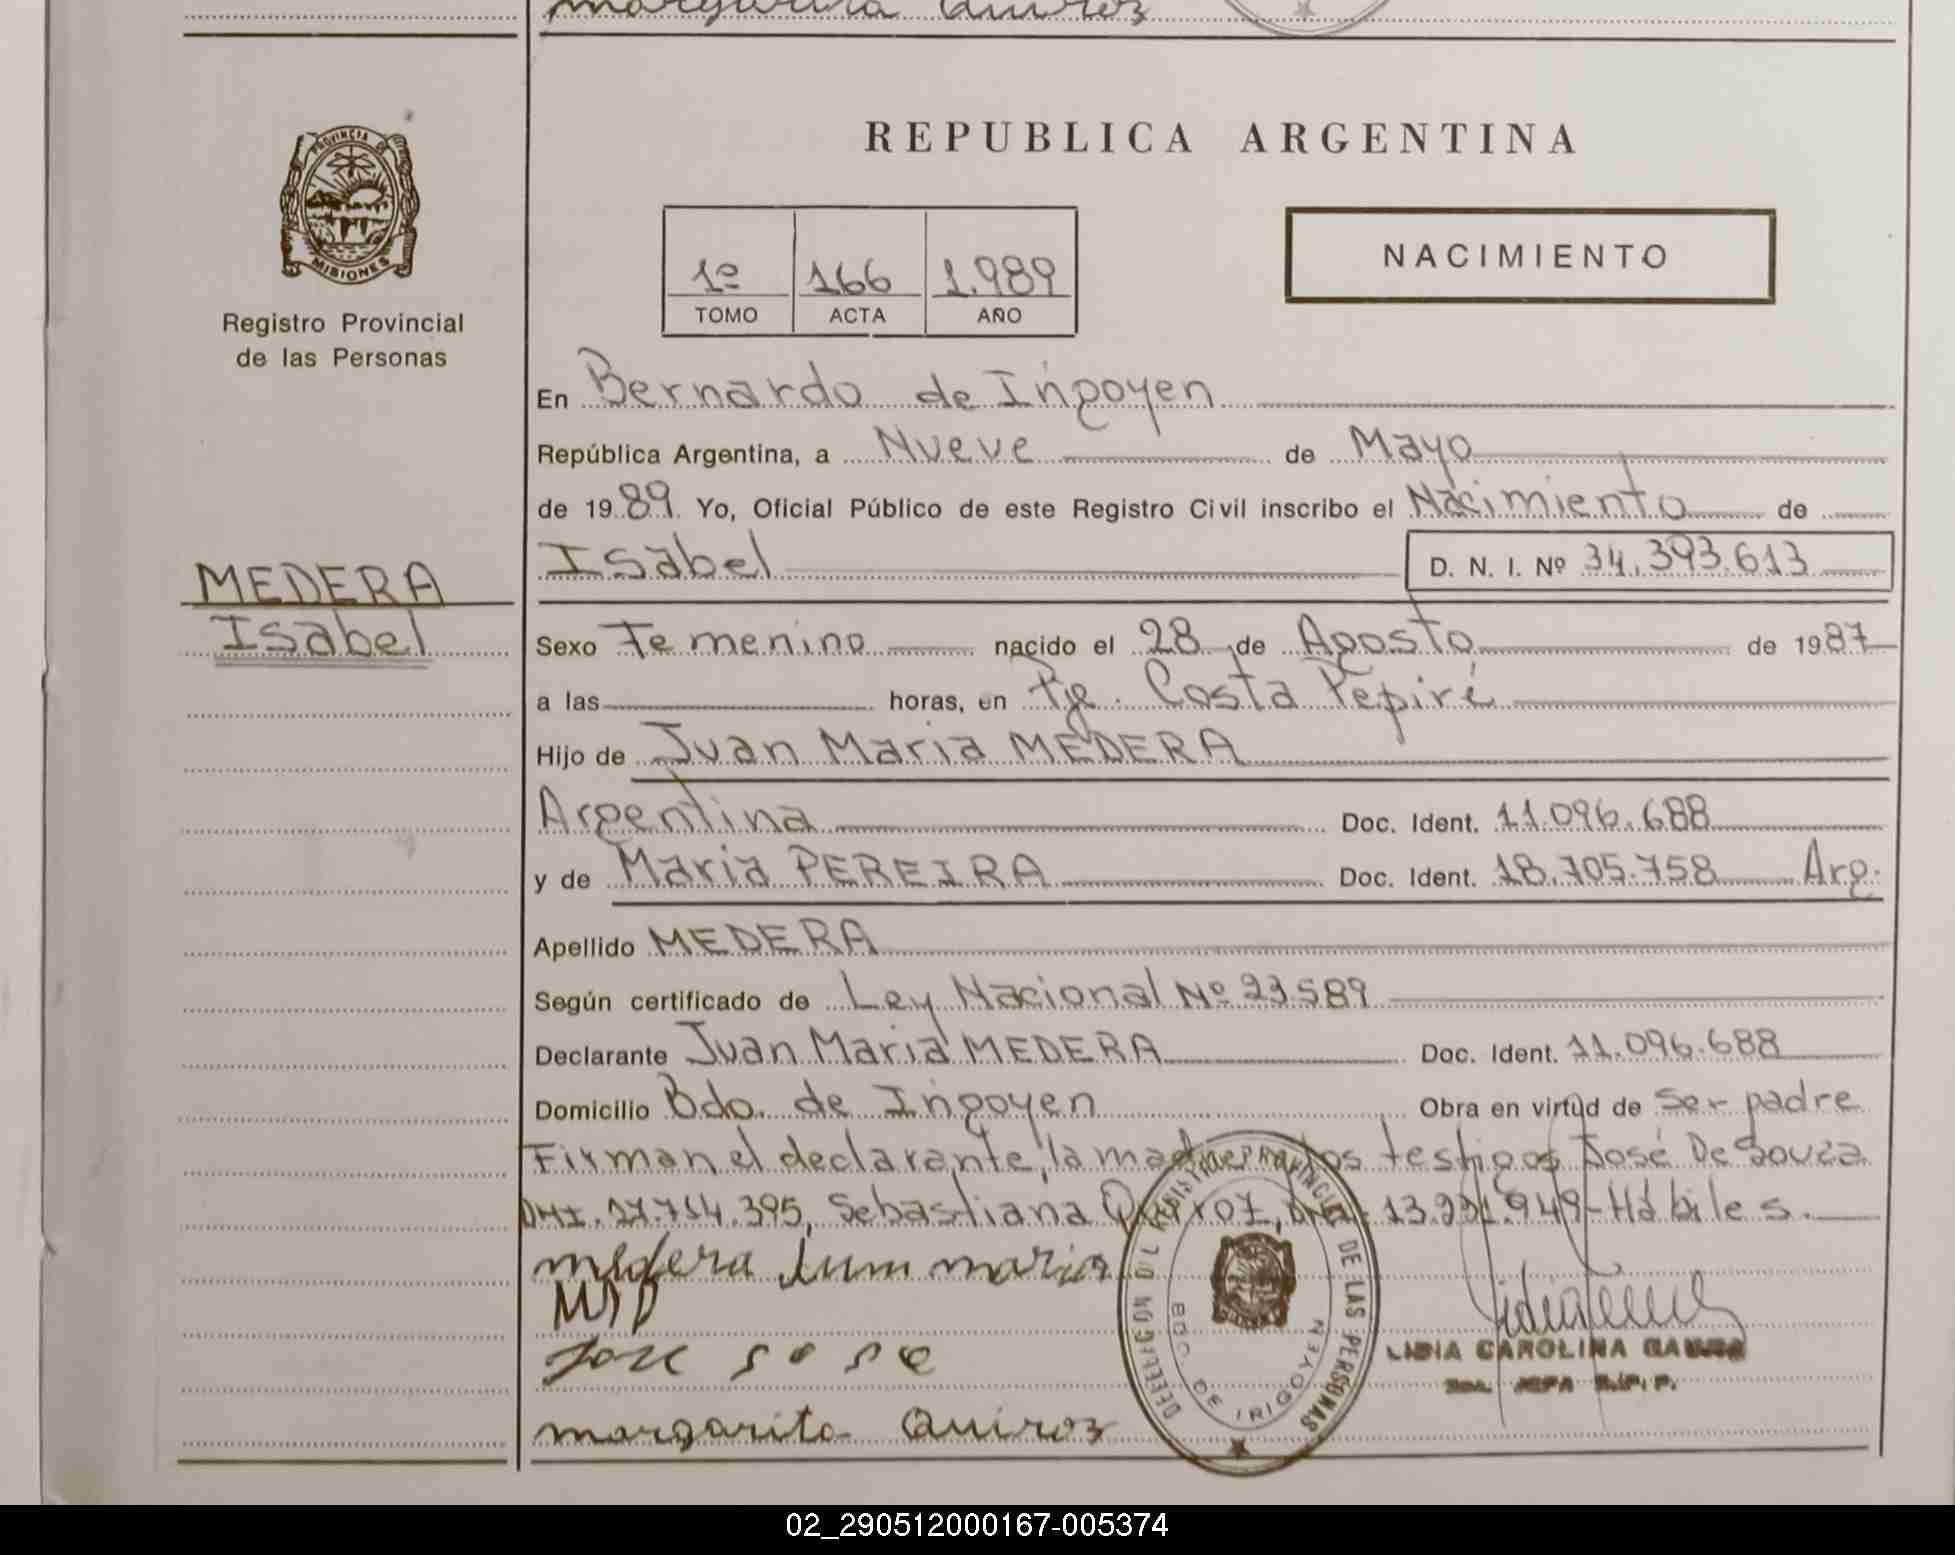 margarita Quiroz
PROVINCIA DE
MISIONES
Registro Provincial
de las Personas
MEDERA
Isabel
REPUBLICA ARGENTINA
1º 166 1.989
TOMO ACTA AÑO
NACIMIENTO
En Bernardo de Irigoyen
República Argentina, a Nueve de Mayo
de 1989 Yo, Oficial Público de este Registro Civil inscribo el Nacimiento de
Isabel D. N. I. Nº 34.393.613
Sexo Femenino nacido el 28 de Agosto de 1987
a las horas, en Pje. Costa Pepirí
Hijo de Juan Maria MEDERA
Argentina Doc. Ident. 11.096.688
y de Maria PEREIRA Doc. Ident. 18.705.758 Arg.
Apellido MEDERA
Según certificado de Ley Nacional Nº 23589
Declarante Juan Maria MEDERA Doc. Ident. 11.096.688
Domicilio Bdo. de Irigoyen Obra en virtud de Ser padre
Firman el declarante, la madre los testigos José De Souza
Sebastiana Quiroz, 13.231.949 - Hábiles.
medera Juan maria
Jose
margarita Quiroz
REGISTRO PROVINCIAL DE LAS PERSONAS
BDO. DE IRIGOYEN
CAROLINA
02_290512000167-005374